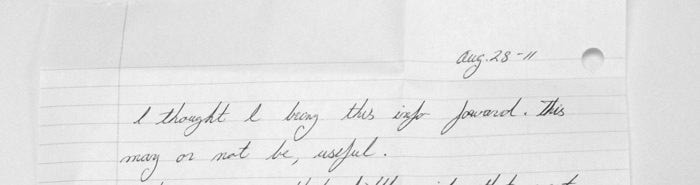 Aug. 28-11
I thought I brong this info foward. This
may or not be, useful.